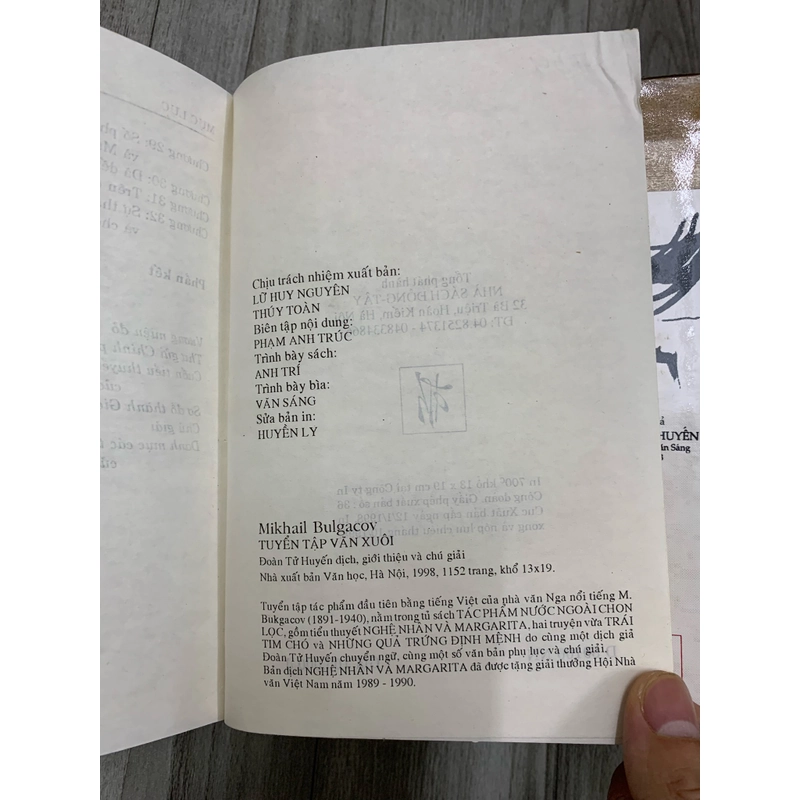 Chịu trách nhiệm xuất bản:
LỮ HUY NGUYÊN
THÚY TOÀN
Biên tập nội dung:
PHẠM ANH TRÚC
Trình bày sách:
ANH TRÍ
Trình bày bìa:
VĂN SÁNG
Sửa bản in:
HUYỀN LY
Mikhail Bulgacov
TUYỂN TẬP VĂN XUÔI
Đoàn Tử Huyến dịch, giới thiệu và chú giải
Nhà xuất bản Văn học, Hà Nội, 1998, 1152 trang, khổ 13x19.
Tuyển tập tác phẩm đầu tiên bằng tiếng Việt của nhà văn Nga nổi tiếng M.
Bukgacov (1891-1940), nằm trong tủ sách TÁC PHẨM NƯỚC NGOÀI CHỌN
LỌC, gồm tiểu thuyết NGHỆ NHÂN VÀ MARGARITA, hai truyện vừa TRÁI
TIM CHÓ và NHỮNG QUẢ TRỨNG ĐỊNH MỆNH do cùng một dịch giả
Đoàn Tử Huyến chuyển ngữ, cùng một số văn bản phụ lục và chú giải.
Bản dịch NGHỆ NHÂN VÀ MARGARITA đã được tặng giải thưởng Hội Nhà
văn Việt Nam năm 1989 - 1990.
MỤC LỤC
Chương 29: Số ph
và M
Chương 30: Đã đế
Chương 31. Trên
Chương 32: Sự th
và ch
Phần kết
Tổng phát hành
NHÀ SÁCH ĐÔNG-TÂY
32 Bà Triệu, Hoàn Kiếm, Hà Nội
HUYẾN
ăn Sáng